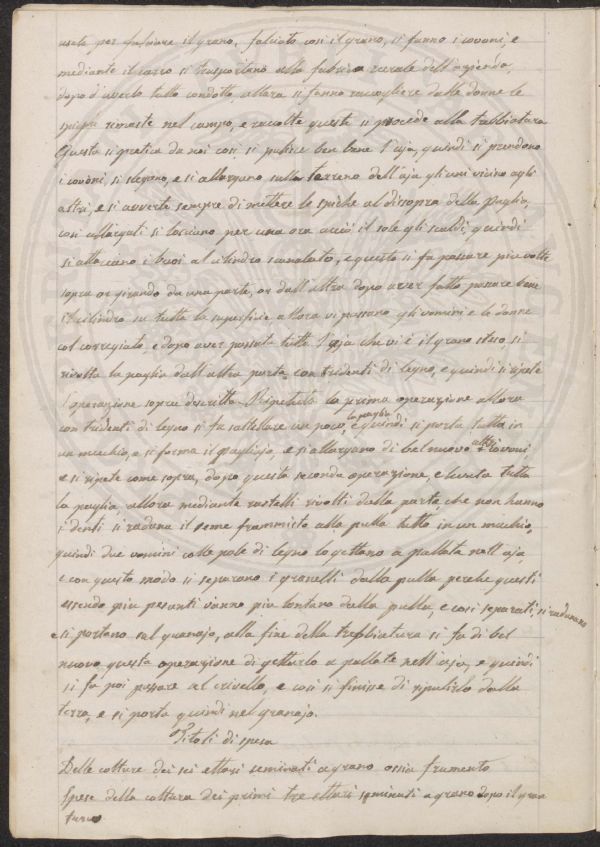 usate per falciare il grano, falciato così il grano, si fanno i covoni, e
mediante il carro si trasportano alla fabrica rurale dell'azienda,
dopo d'averlo tutto condotto, allora si fanno raccogliere dalle donne le
spighe rimaste nel campo, e raccolte queste si procede alla trebbiatura
Questa si pratica da noi così si pulisce ben bene l'aja, quindi si prendono
i covoni, si slegano, e si allargano sulla terreno dell'aja gli uni vicino agli
altri, e si avverte sempre di mettere le spiche al disopra della paglia,
così allargati si lasciano per una ora acciò il sole gli scaldi, quindi
si allacciano i buoi al cilindro scanalato, e questo si fa passare più volte
sopra or girando da una parte, or dall'altra dopo aver fatto passare bene
il cilindro su tutta la superficie allora vi passano gli uomini e le donne
col correggiato, e dopo aver passata tutta l'aja che vi è il grano steso si
rivolta la paglia dall'altra parte con tridenti di legno, e quindi si ripete
l'operazione sopra descritta. Ripetuta la prima operazione allora
con tridenti di legno si fa saltellare un poco, la paglia e quindi si porta tutta in
un mucchio, e si forma il pagliajo, e si allargano di bel nuovo altri covoni
e si ripete come sopra, dopo questa seconda operazione, e levata tutta
la paglia, allora mediante rastelli rivolti dalla parte, che non hanno
i denti si raduna il seme frammisto alla pulla tutto in un mucchio,
quindi due uomini colle pale di legno lo gettano a pallata nell'aja,
e con questo modo si separano i granelli dalla pulla perche questi
essendo più pesanti vanno più lontano dalla pulla, e così separati, si radunano
e si portano nel granajo, alla fine della trebbiatura si fa di bel
nuovo questa operazione di gettarlo a pallate nell'aja, e quindi
si fa poi passare al crivello, e così si finisse di ripulirlo dalla
terra, e si porta quindi nel granajo.
Titoli di spesa
Delle colture dei sei ettari seminati a grano ossia frumento
Spese della coltura dei primi tre ettari seminati a grano dopo il gran
turco